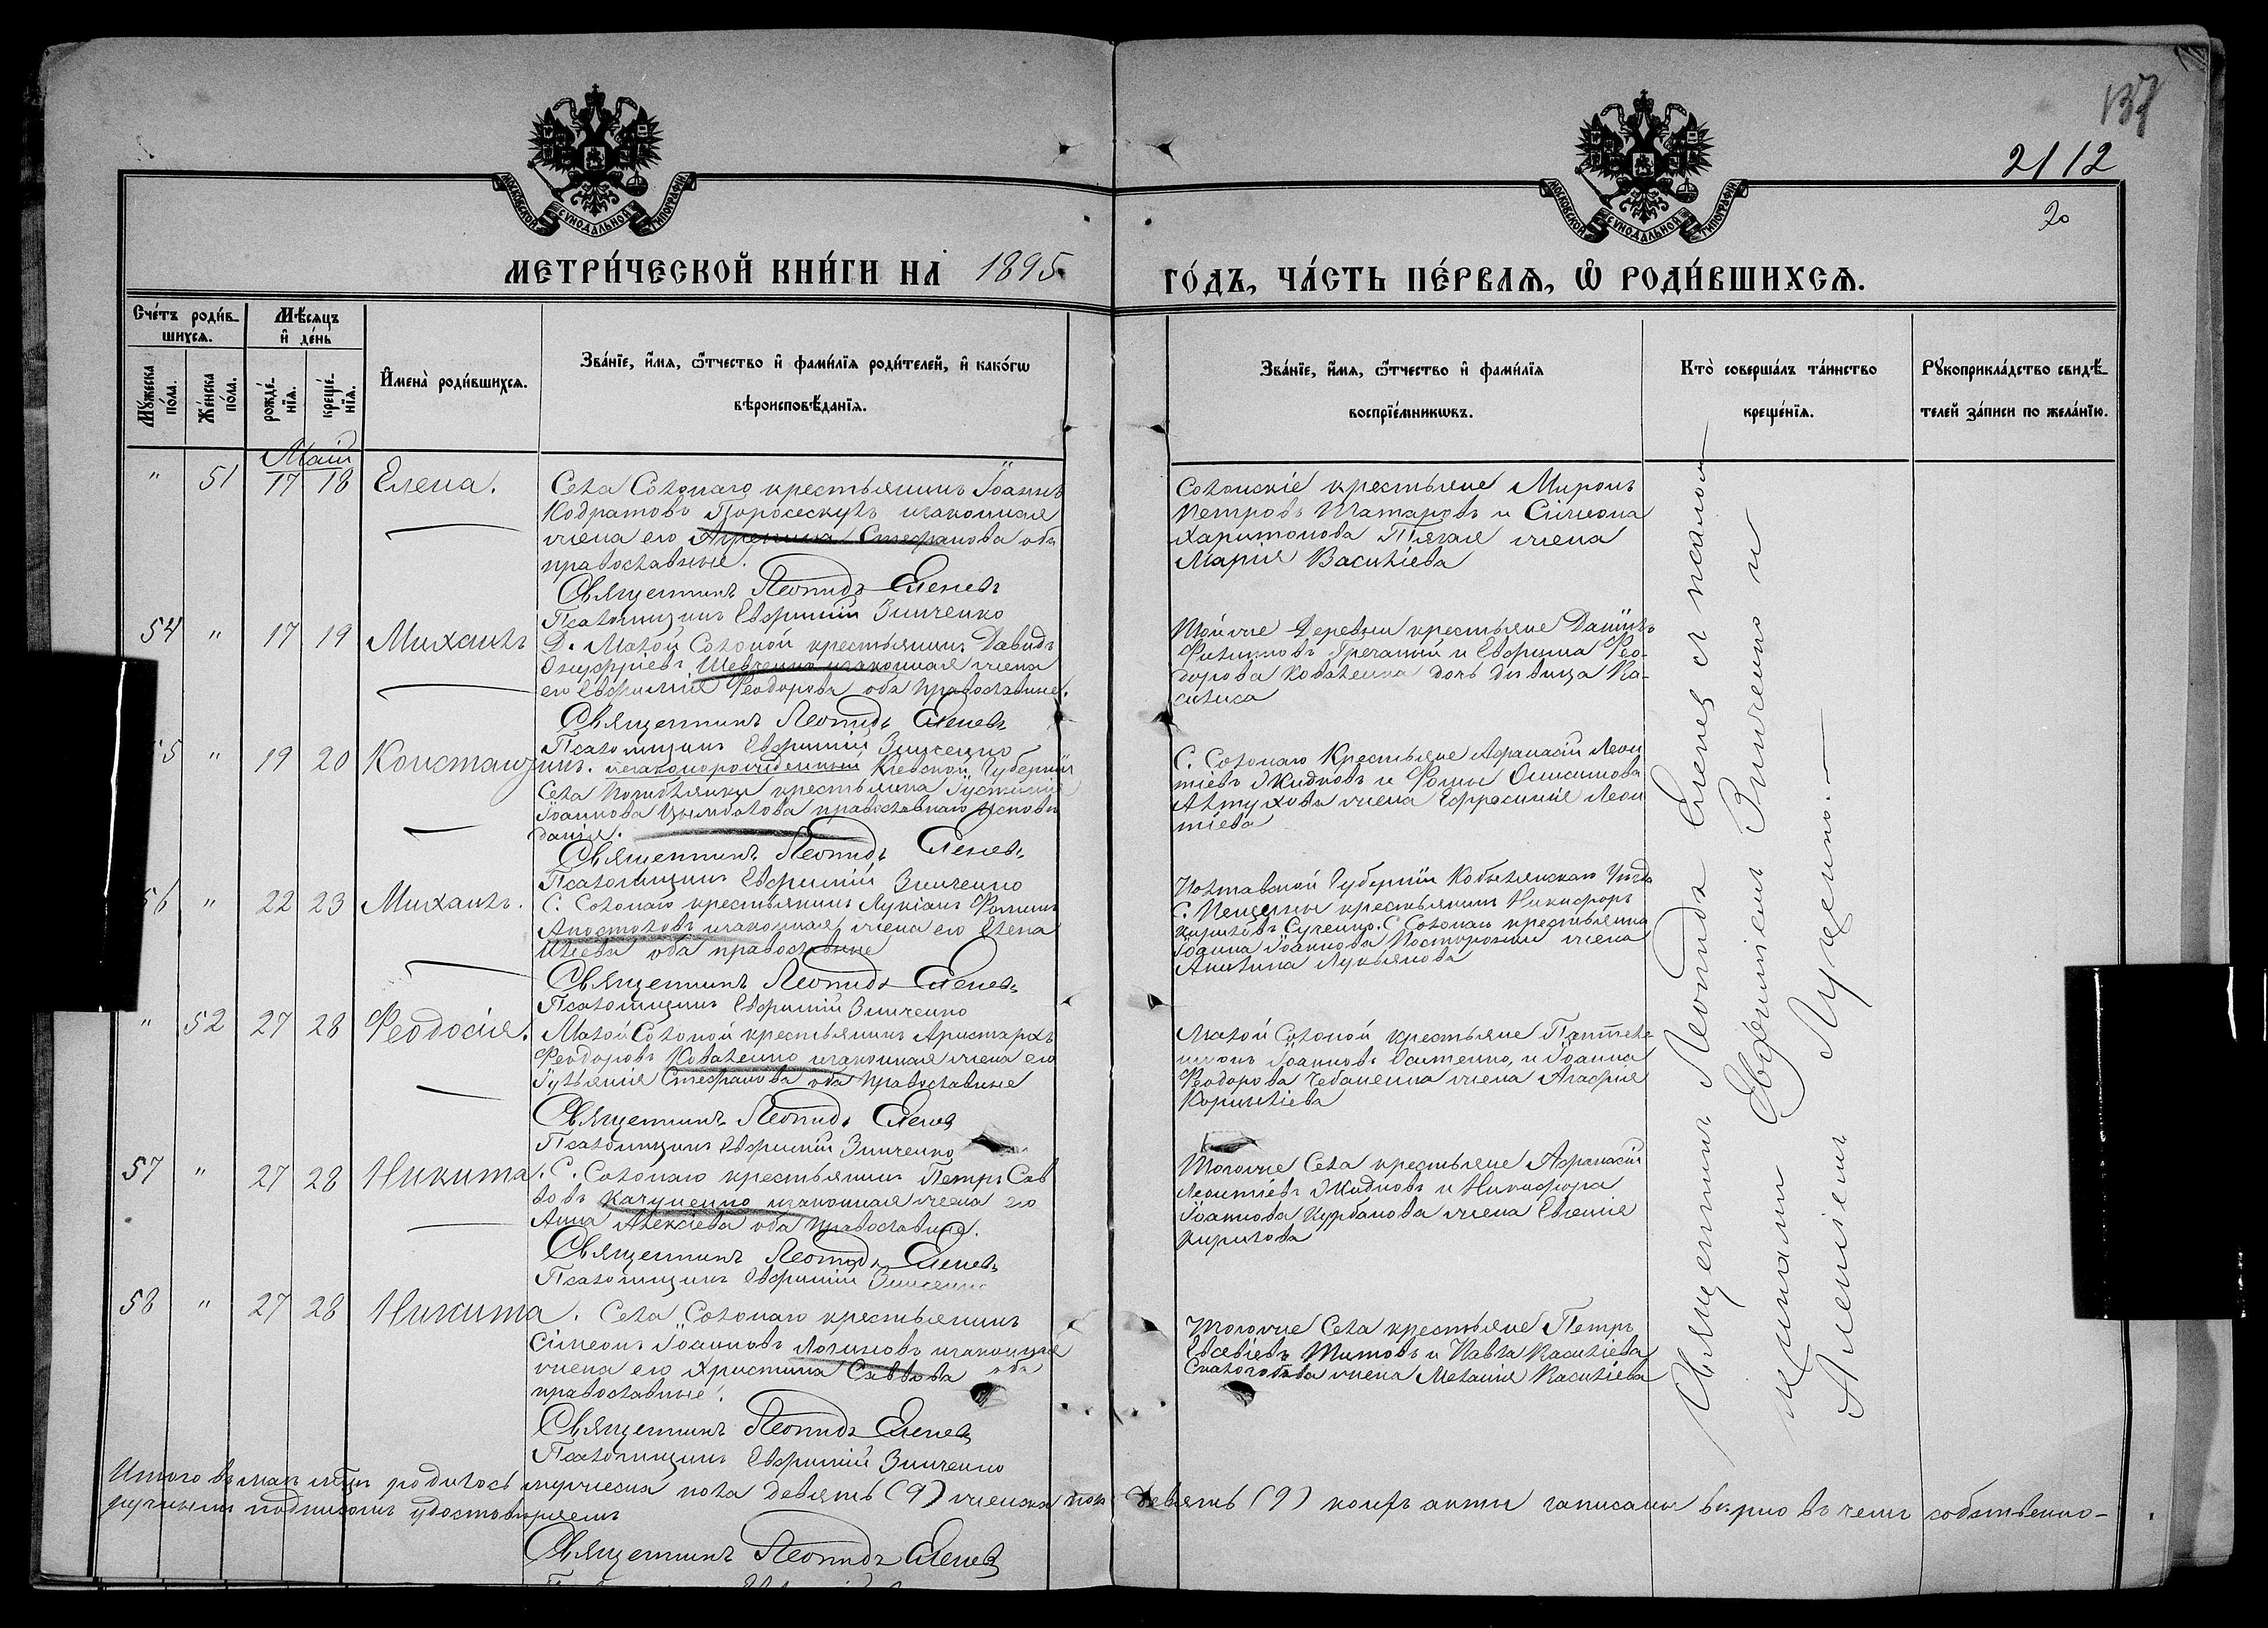 137
21 12
20
МОСКОВСКОЙ СУНОДАЛЬНОЙ ТИПОГРАФІИ
МОСКОВСКОЙ СУНОДАЛЬНОЙ ТИПОГРАФІИ
МЕТРИ́ЧЕСКОЙ КНИ́ГИ НА 1895
ГО́ДЪ, ЧА́СТЬ ПЕ́РВАЯ, Ѡ҆ РОДИ́ВШИХСЯ.
Сче́тъ роди́в-
шихся.
Мѣ́сяцъ
и҆ де́нь
Мꙋ́жеска по́ла.
Же́нска по́ла.
рожде́-
нїя.
креще́-
нїя.
И҆мена̀ роди́вшихся.
Зва́нїе, и҆́мя, ѻ҆́тчество и҆ фами́лїя роди́телей, и҆ како́гѡ
вѣроисповѣ́данїя.
Зва́нїе, и҆́мя, ѻ҆́тчество и҆ фами́лїя
воспрїе́мникѡвъ.
Кто̀ соверша́лъ та́инство
креще́нїя.
Рꙋкоприкла́дство свидѣ́-
телей за́писи по жела́нїю.
Маій
" 51 17 18 Елена.
Села Солонаго крестьянинъ Іоаннъ
Кодратовъ Поросескулъ изаконная
жена его Агрепина Стефанова оба
православные.
Священникъ Леонидъ Еленевъ
Псаломщикъ Евфимій Зинченко
Солонскіе крестьяне Миронъ
Петровъ Татаровъ и Сімеона
Харитонова Пягая жена
Марія Василіева
54 " 17 19 Михаилъ
Д. Малой Солоной крестьянинъ Давидъ
Онуфріевъ Шевченко изаконная жена
его Евфимія Феодорова оба православные.
Священникъ Леонидъ Еленевъ
Псаломщикъ Евфимій Зинченко
Той же Деревни крестьяне Даніилъ
Филиповъ Гречаный и Евфима Фео-
дорова Коваленка дочь дѣвица Ва-
силиса
55 " 19 20 Константинъ. незаконорожденный Кіевской Губерніи
православнаго исповѣ
данія.
Священникъ Леонидъ Еленевъ
Псаломщикъ Евфимій Зинченко
С. Солонаго Крестьяне Афанасій Леон
тіевъ Жидковъ и Фомы Онисимова
Алтухова жена Ефросинія Леон
тіева
56 " 22 23 Михаилъ.
С. Солонаго крестьянинъ Лукіанъ Фоминъ
Апостоловъ изаконная жена его Елена
Иліева оба православные
Священникъ Леонидъ Еленевъ
Псаломщикъ Евфимій Зинченко
Полтавской Губерніи Кобелякскаго Уѣзда
крестьянинъ Никифоръ
Кириловъ С. Солонаго крестьянина
Іоанна Іоаннова жена
Акилина Лукьянова
" 52 27 28 Феодосія.
Малой Солоной крестьянинъ Аристархъ
Феодоровъ Коваленко изаконная жена его
Гулянія Стефанова оба православные
Священникъ Леонидъ Еленевъ
Псаломщикъ Евфимій Зинченко
Малой Солоной крестьяне Пантеле
имонъ Іоанновъ и Іоанна
Феодорова Чебаненка жена Агафія
Корнилієва
57 " 27 28 Никита.
С. Солонаго крестьянинъ Петръ Сав
вовъ Качуненко изаконная жена его
Анна Алексіева оба православные.
Священникъ Леонидъ Еленевъ
Псаломщикъ Евфимій Зинченко
Тогоже Села крестьяне Афанасій
Леонтіевъ Жидковъ и Никифора
Іоаннова Курбанова жена Евгенія
Кирилова
58 " 27 28 Никита.
Села Солонаго крестьянинъ
Сімеонъ Іоанновъ Логиновъ изаконная
жена его Христина Саввова оба
православные.
Священникъ Леонидъ Еленевъ
Псаломщикъ Евфимій Зинченко
Тогоже Села крестьяне Петръ
Евсевіевъ Титовъ и Павла Василіева
жена Меланія Василіева
Священникъ Леонидъ Еленев с псалом-
щиками Евфиміемъ Зинченко и
Алексіемъ Луценко.—
Итого въ маѣ мѣсяцѣ родилось мужеска пола девять (9) женска пола девять (9) акты записаны вѣрно въ чемъ собственно-
ручными подписомъ удостовѣряемъ
Священникъ Леонидъ Еленевъ